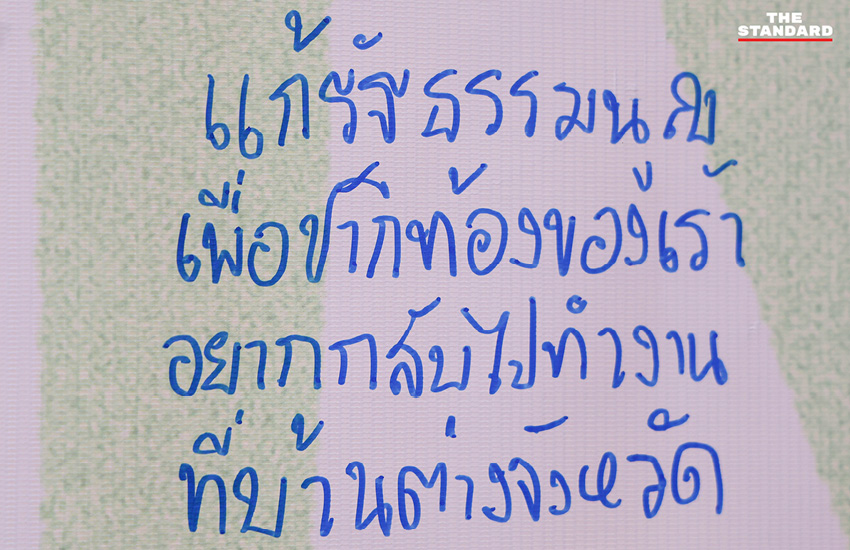 THE
STANDARD
แก้รัฐธรรมนูญ
เพื่อปากท้องของเรา
อยากกลับไปทำงาน
ที่บ้านต่างจังหวัด